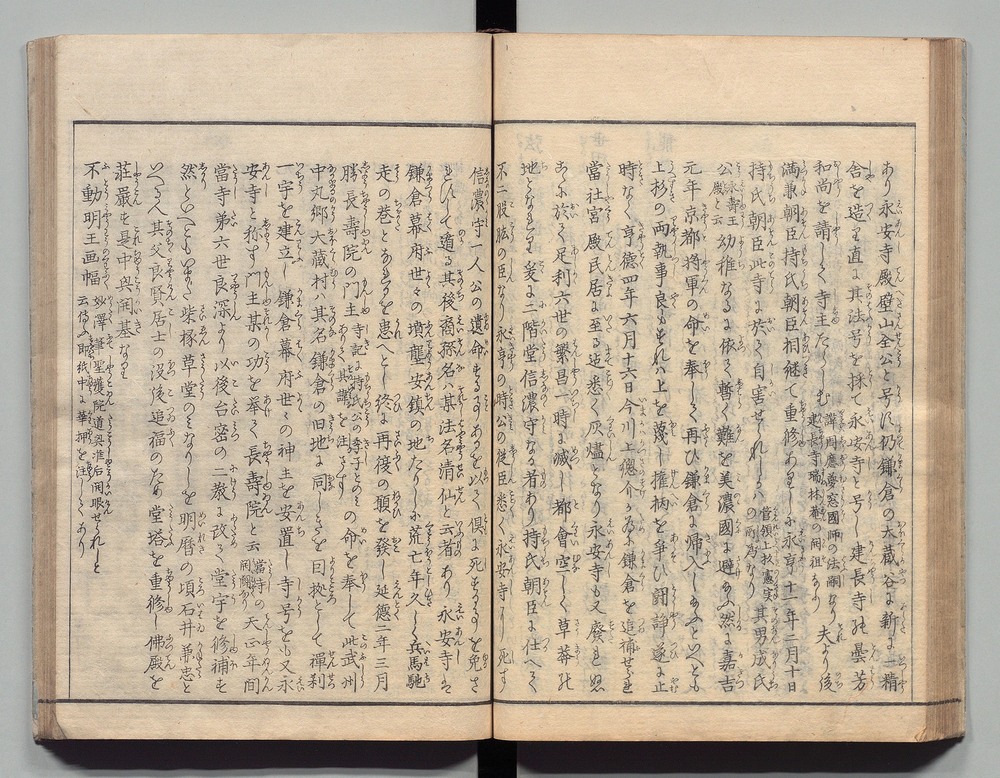 あり永安寺殿壁山全公と号す仍鎌倉の大蔵谷に新に一精
舎を造り直に其法号を採て永安寺と号し建長寺の曇芳
和尚を請して寺主たらしむ諱周應夢窓國師の法嗣なり建長寺瑞林菴の開祖なり夫より後
満兼朝臣持氏朝臣相継て重修ありしに永享十一年二月十日
持氏朝臣此寺に於て自害せられしかハ管領上杉憲実の所為なり其男成氏
公永壽王殿と云幼稚なるに依て暫く難を美濃國に避らる然に嘉吉
元年京都将軍の命を奉して再ひ鎌倉に帰入し給ふといへとも
上杉の両執事良もすれハ上を蔑し権柄を争ひ闘諍遂に止
時なく享德四年六月十六日今川上總介か為に鎌倉を追補せられ
當社宮殿民居に至る迄悉く灰燼となり永安寺も又廢し忽
あに於て足利六世の繁昌一時に滅し都會空しく草莽の
地となれり爰に二階堂信濃守なる者あり持氏朝臣に仕へて
不二股肱の臣なり永享の時公の従臣悉く永安寺に死す
信濃守一人公の遺命あるを以て倶に死することを免さ
れすして遁る其後裔孫名ハ某法名清仙と云者あり永安寺は
鎌倉幕府世々の墳壟安鎮の地たりしに荒亡年久しく兵馬馳
走の巷とあることを患へとし終に再復の願を發し延德二年三月
勝長壽院の門主寺記に持氏公の尊子とのみありて其諱を注さすの命を奉して此武州
中丸郷大蔵村ハ其名鎌倉の旧地に同しきを因據として禪刹
一宇を建立し鎌倉幕府世々の神主を安置し寺号をも又永
安寺と称す門主某の功を挙て長壽院と云當時の開祖なり天正年間
當寺第六世良深より以後台密の二教に改て堂宇を修補も
然といへともいまた柴椽草堂のミなりしを明暦の頃石井兼忠と
いへる人其父良賢居士の没後追福のため堂塔を重修し佛殿を
荘嚴す是中興開基なり
不動明王画幅妙澤筆聖護院道晃准后開眼せられしと云傳ふ即紙中に華押を注してあり